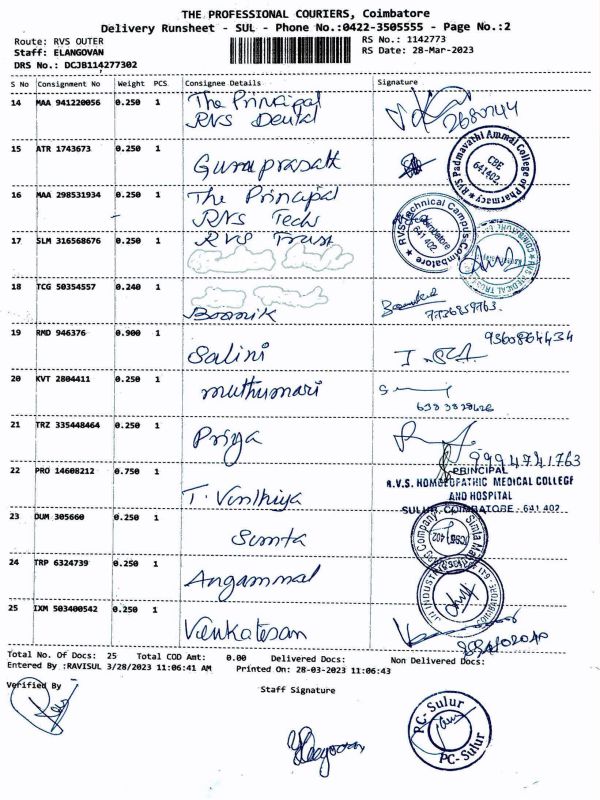 THE PROFESSIONAL COURIERS, Coimbatore
Delivery Runsheet - SUL - Phone No.:0422-3505555 - Page No.:2
Route: RVS OUTER
RS No.: 1142773
Staff: ELANGOVAN
RS Date: 28-Mar-2023
DRS No.: DCJB114277302
S No Consignment No Weight PCS Consignee Details Signature
14 MAA 941220056 0.250 1 The Principal
RVS Dental
2680744
15 ATR 1743673 0.250 1 Guruprasath
RVS Padmavathi Ammal College of Pharmacy
CBE
641402
16 MAA 298531934 0.250 1 The Principal
RVS Tech
RVS Technical Campus-Coimbatore
Coimbatore
641 402
17 SLM 316568676 0.250 1 RVS Trust
RVS MEDICAL TRUST
18 TCG 50354557 0.240 1
Boomik
7736859763
19 RMD 946376 0.900 1 Salini
9360864434
20 KVT 2804411 0.250 1 muthumari
21 TRZ 335448464 0.250 1 Priya
9994741763
22 PRO 14608212 0.750 1 T. Vinthiya
PRINCIPAL
R.V.S. HOMOEOPATHIC MEDICAL COLLEGE
AND HOSPITAL
SULUR, COIMBATORE - 641 402
23 DUM 305660 0.250 1 Simta
24 TRP 6324739 0.250 1 Angammal
25 IXM 503400542 0.250 1 Venkatesan
Total No. Of Docs: 25 Total COD Amt: 0.00 Delivered Docs: Non Delivered Docs:
Entered By :RAVISUL 3/28/2023 11:06:41 AM Printed On: 28-03-2023 11:06:43
Verified By
Staff Signature
PC- Sulur
PC- Sulur